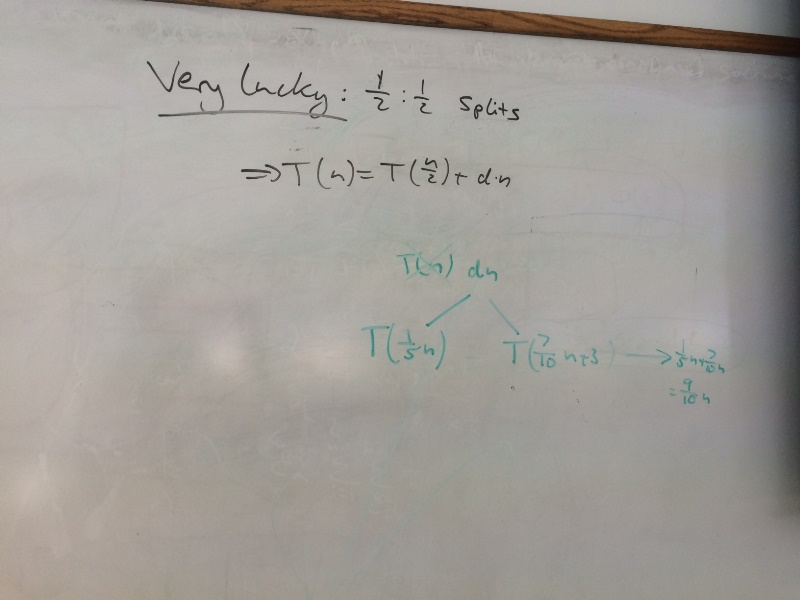 Very lucky: 1/2 : 1/2 splits
⇒ T(n) = T(n/2) + d·n
T(n) dn
T(1/5 n) T(7/10 n+3) → 1/5 n + 7/10 n
= 9/10 n